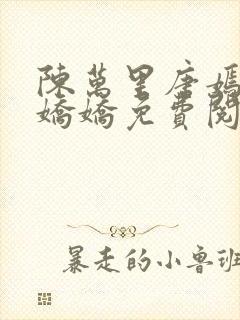 陳萬里唐嫣
嬌嬌免費閱
暴走的小魯班